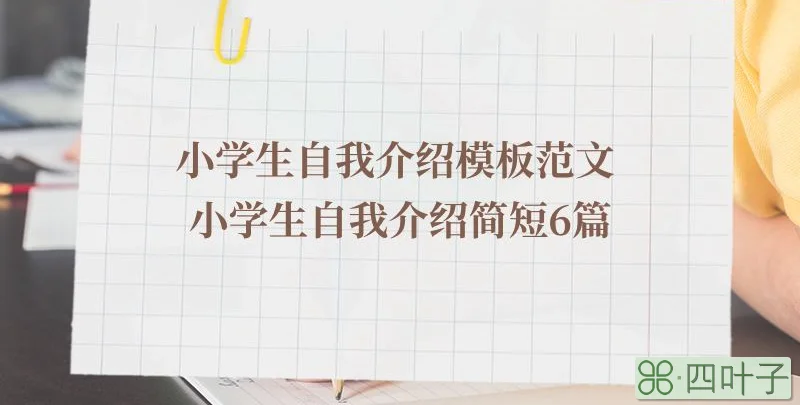 小学生自我介绍模板范文
小学生自我介绍简短6篇
四叶子